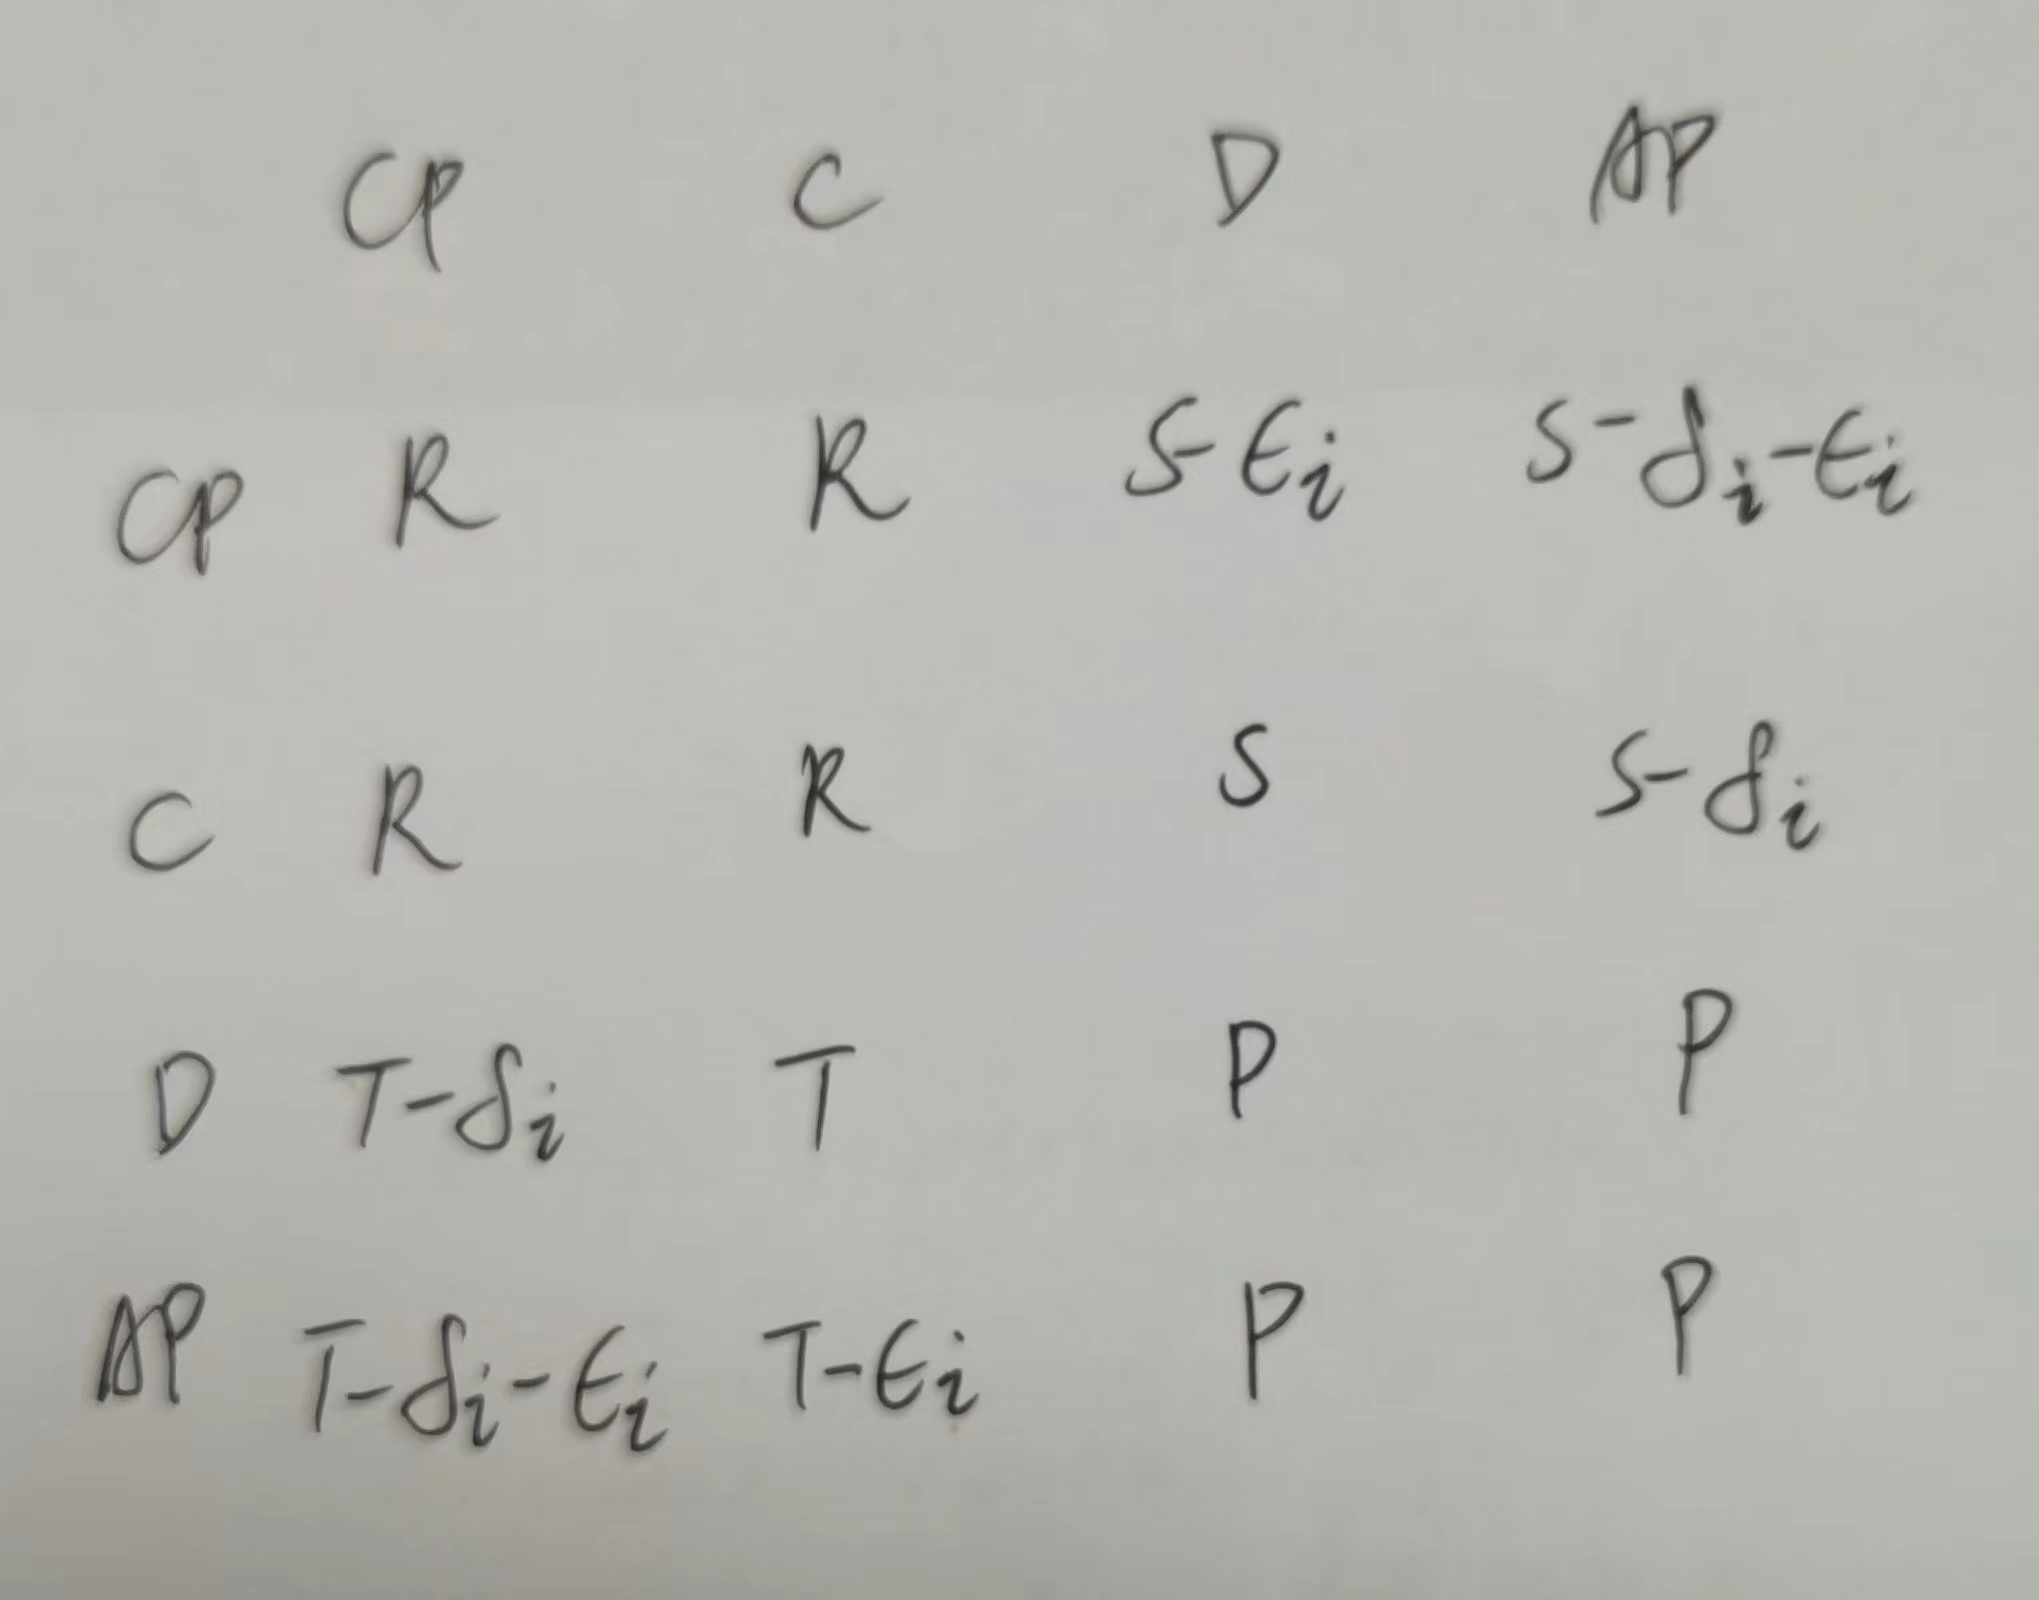 CP C D AP
CP R R S-ϵi S-δi-ϵi
C R R S S-δi
D T-δi T P P
AP T-δi-ϵi T-ϵi P P